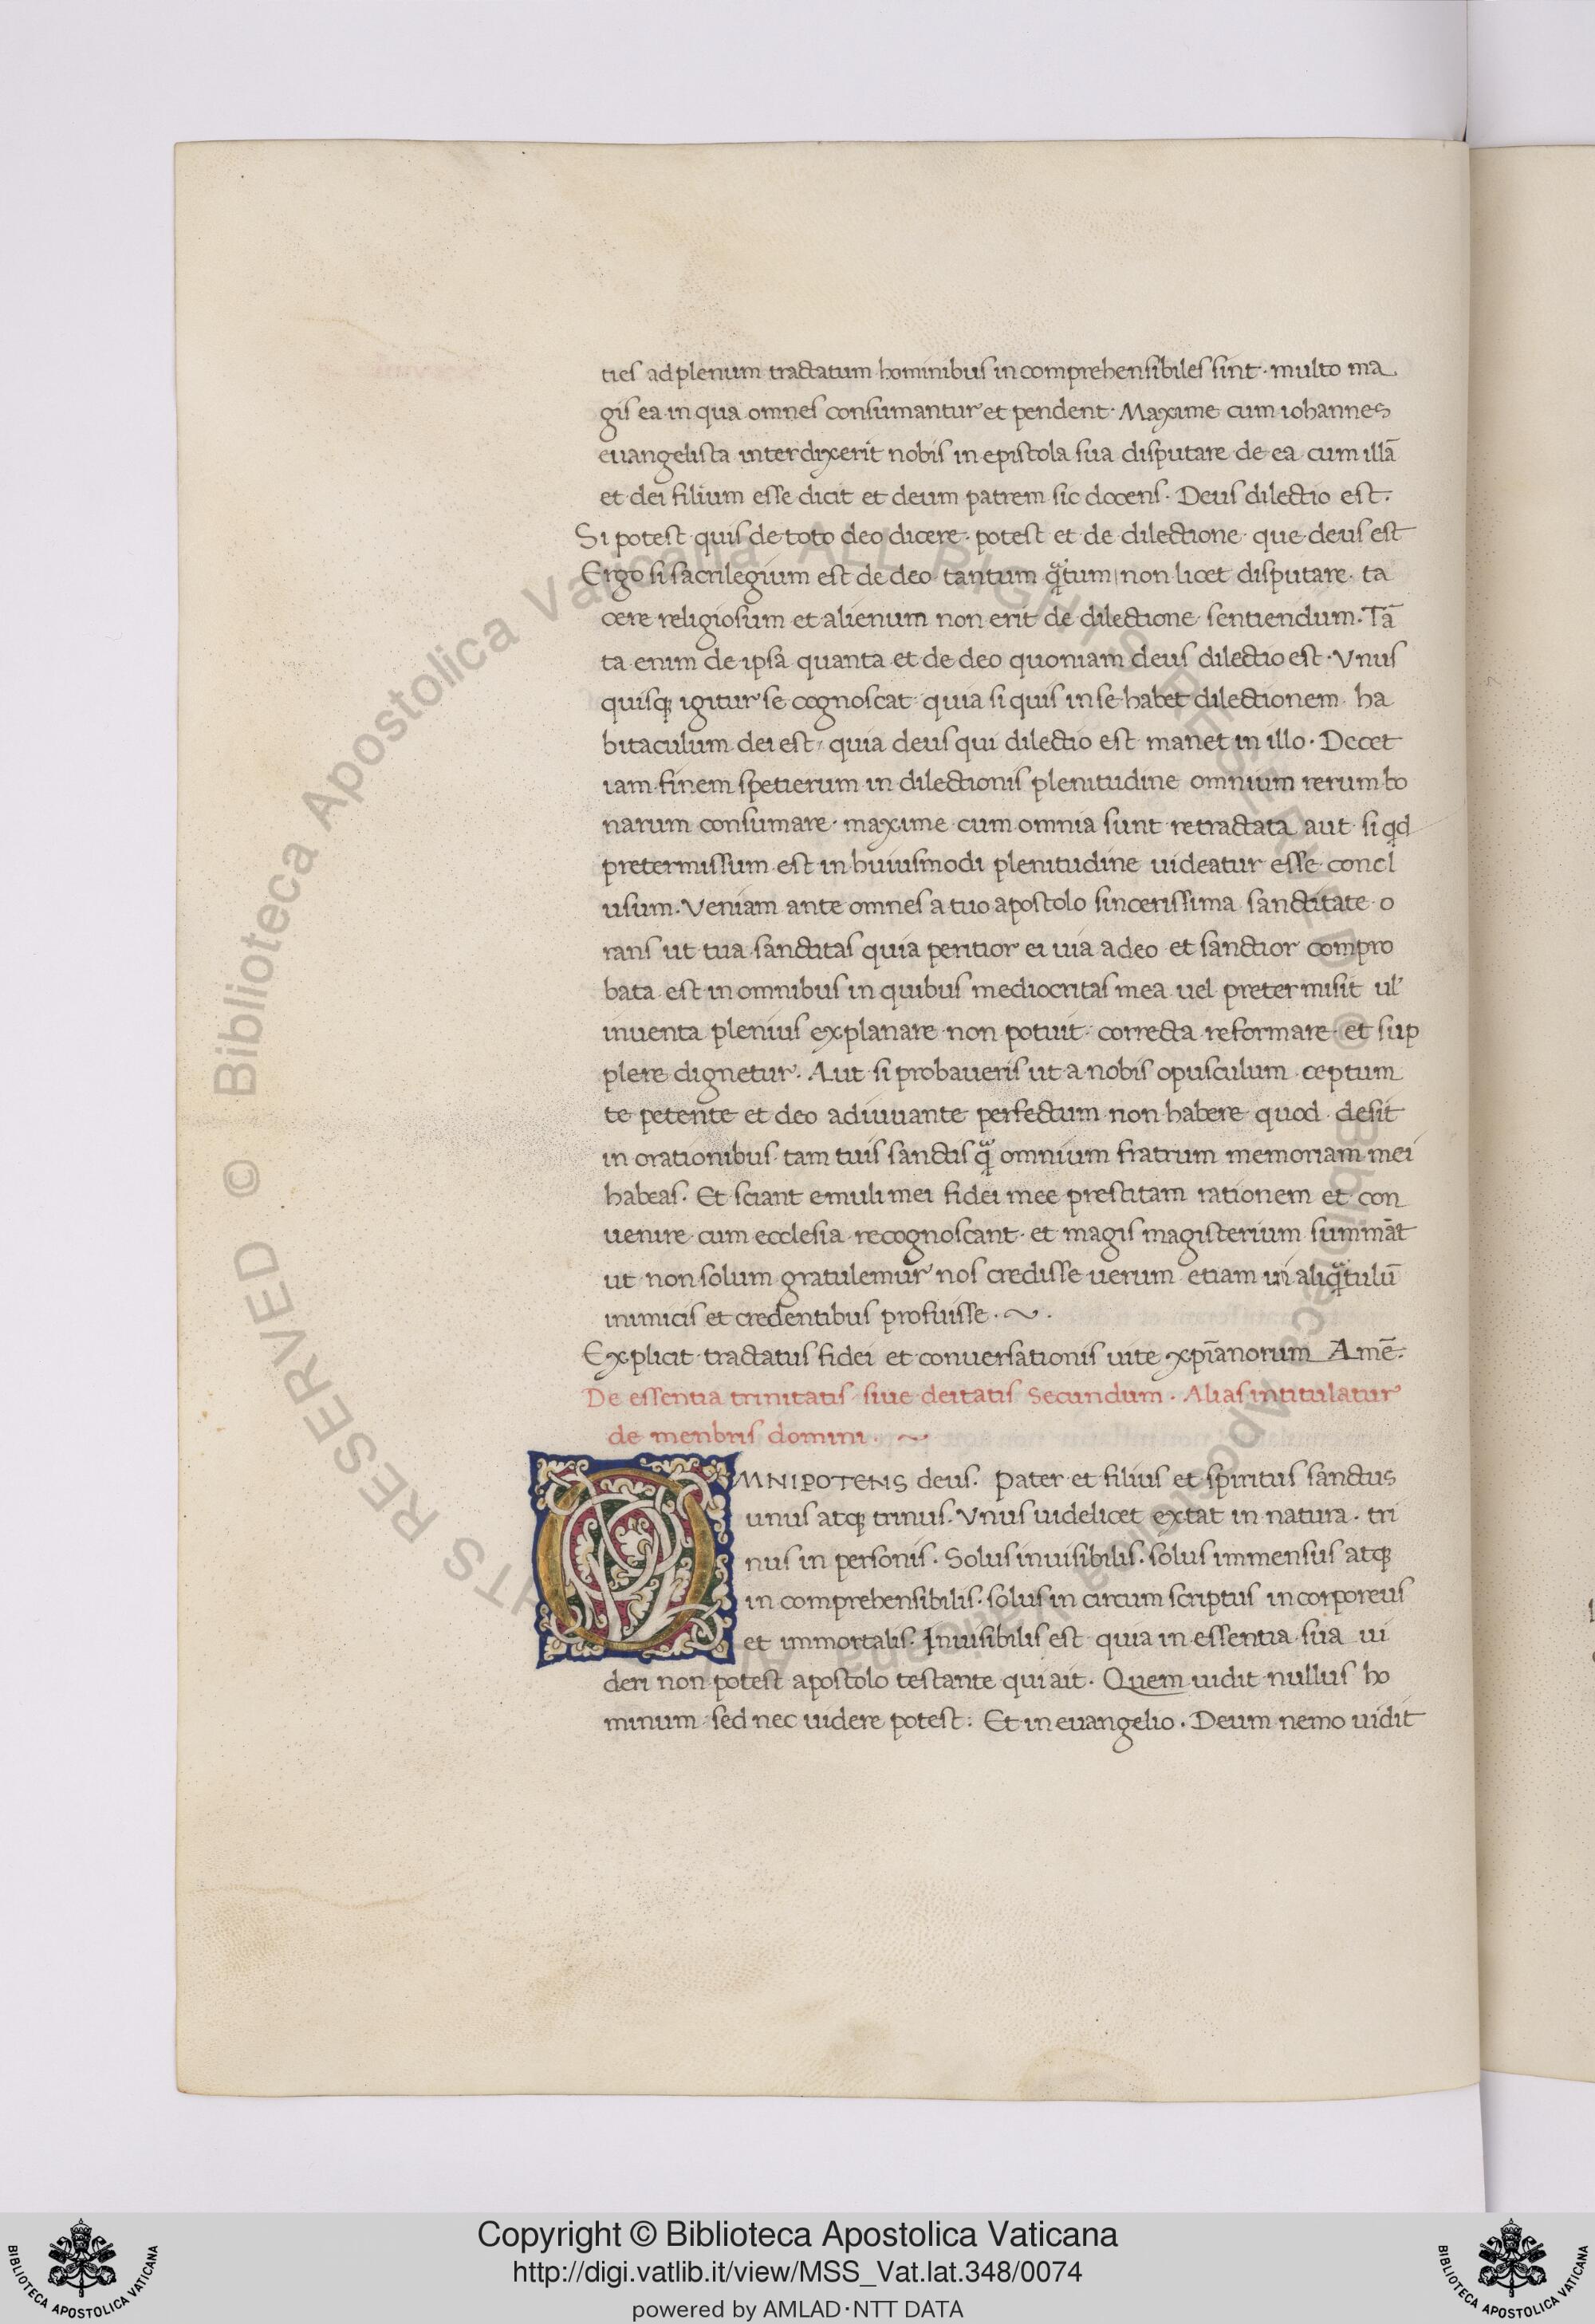 ties ad plenum tractatum hominibus incomprehensibiles sint · multo ma
gis ea in qua omnes consumantur et pendent · Maxime cum iohannes
euangelista interdixerit nobis in epistola sua disputare de ea cum illā
et dei filium esse dicit et deum patrem sic docens · Deus dilectio est.
Si potest quis de toto deo dicere · potest et de dilectione que deus est
Ergo si sacrilegium est de deo tantum qᷓtum non licet disputare · ta
cere religiosum et alienum non erit de dilectione sentiendum. Tā
ta enim de ipsa quanta et de deo quoniam deus dilectio est · Vnus
quisqꝫ igitur se cognoscat quia si quis in se habet dilectionem ha
bitaculum dei est, quia deus qui dilectio est manet in illo · Decet
iam finem spetierum in dilectionis plenitudine omnium rerum bo
narum consumare · maxime cum omnia sunt retractata aut si qd
pretermissum est in huiusmodi plenitudine uideatur esse concl
usum. Veniam ante omnes a tuo apostolo sincerissima sanctitate o
rans ut tua sanctitas quia peritior ei uia adeo et sanctior compro
bata est in omnibus in quibus mediocritas mea uel pretermisit ul'
inuenta plenius explanare non potuit · correcta reformare et sup
plere dignetur. Aut si probaueris ut a nobis opusculum ceptum
te petente et deo adiuuante perfectum non habere quod desit
in orationibus tam tuis sanctis qᷓ omnium fratrum memoriam mei
habeas. Et sciant emuli mei fidei mee prestitam rationem et con
uenire cum ecclesia recognoscant · et magis magisterium summāt
ut non solum gratulemur nos credisse uerum etiam in aliqᷓtulū
inimicis et credentibus profuisse. ~ ·
Explicit tractatus fidei et conuersationis uite xpīanorum Amē.
De essentia trinitatis siue deitatis Secundum. Alias intitulatur
de menbris domini. ~
OMNIPOTENS deus. Pater et filius et spiritus sanctus
unus atqꝫ trinus. Vnus uidelicet extat in natura. tri
nus in personis. Solus inuisibilis. solus immensus atqꝫ
in comprehensibilis. solus in circum scriptus incorporeus
et immortalis. Inuisibilis est quia in essentia sua ui
deri non potest apostolo testante qui ait. Quem uidit nullus ho
minum sed nec uidere potest: Et in euangelio. Deum nemo uidit
Copyright © Biblioteca Apostolica Vaticana
http://digi.vatlib.it/view/MSS_Vat.lat.348/0074
powered by AMLAD·NTT DATA